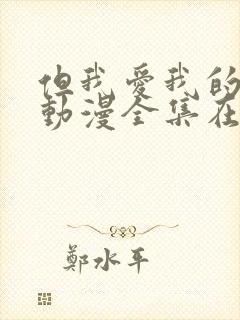 但我愛我的
動漫全集在
鄭水平